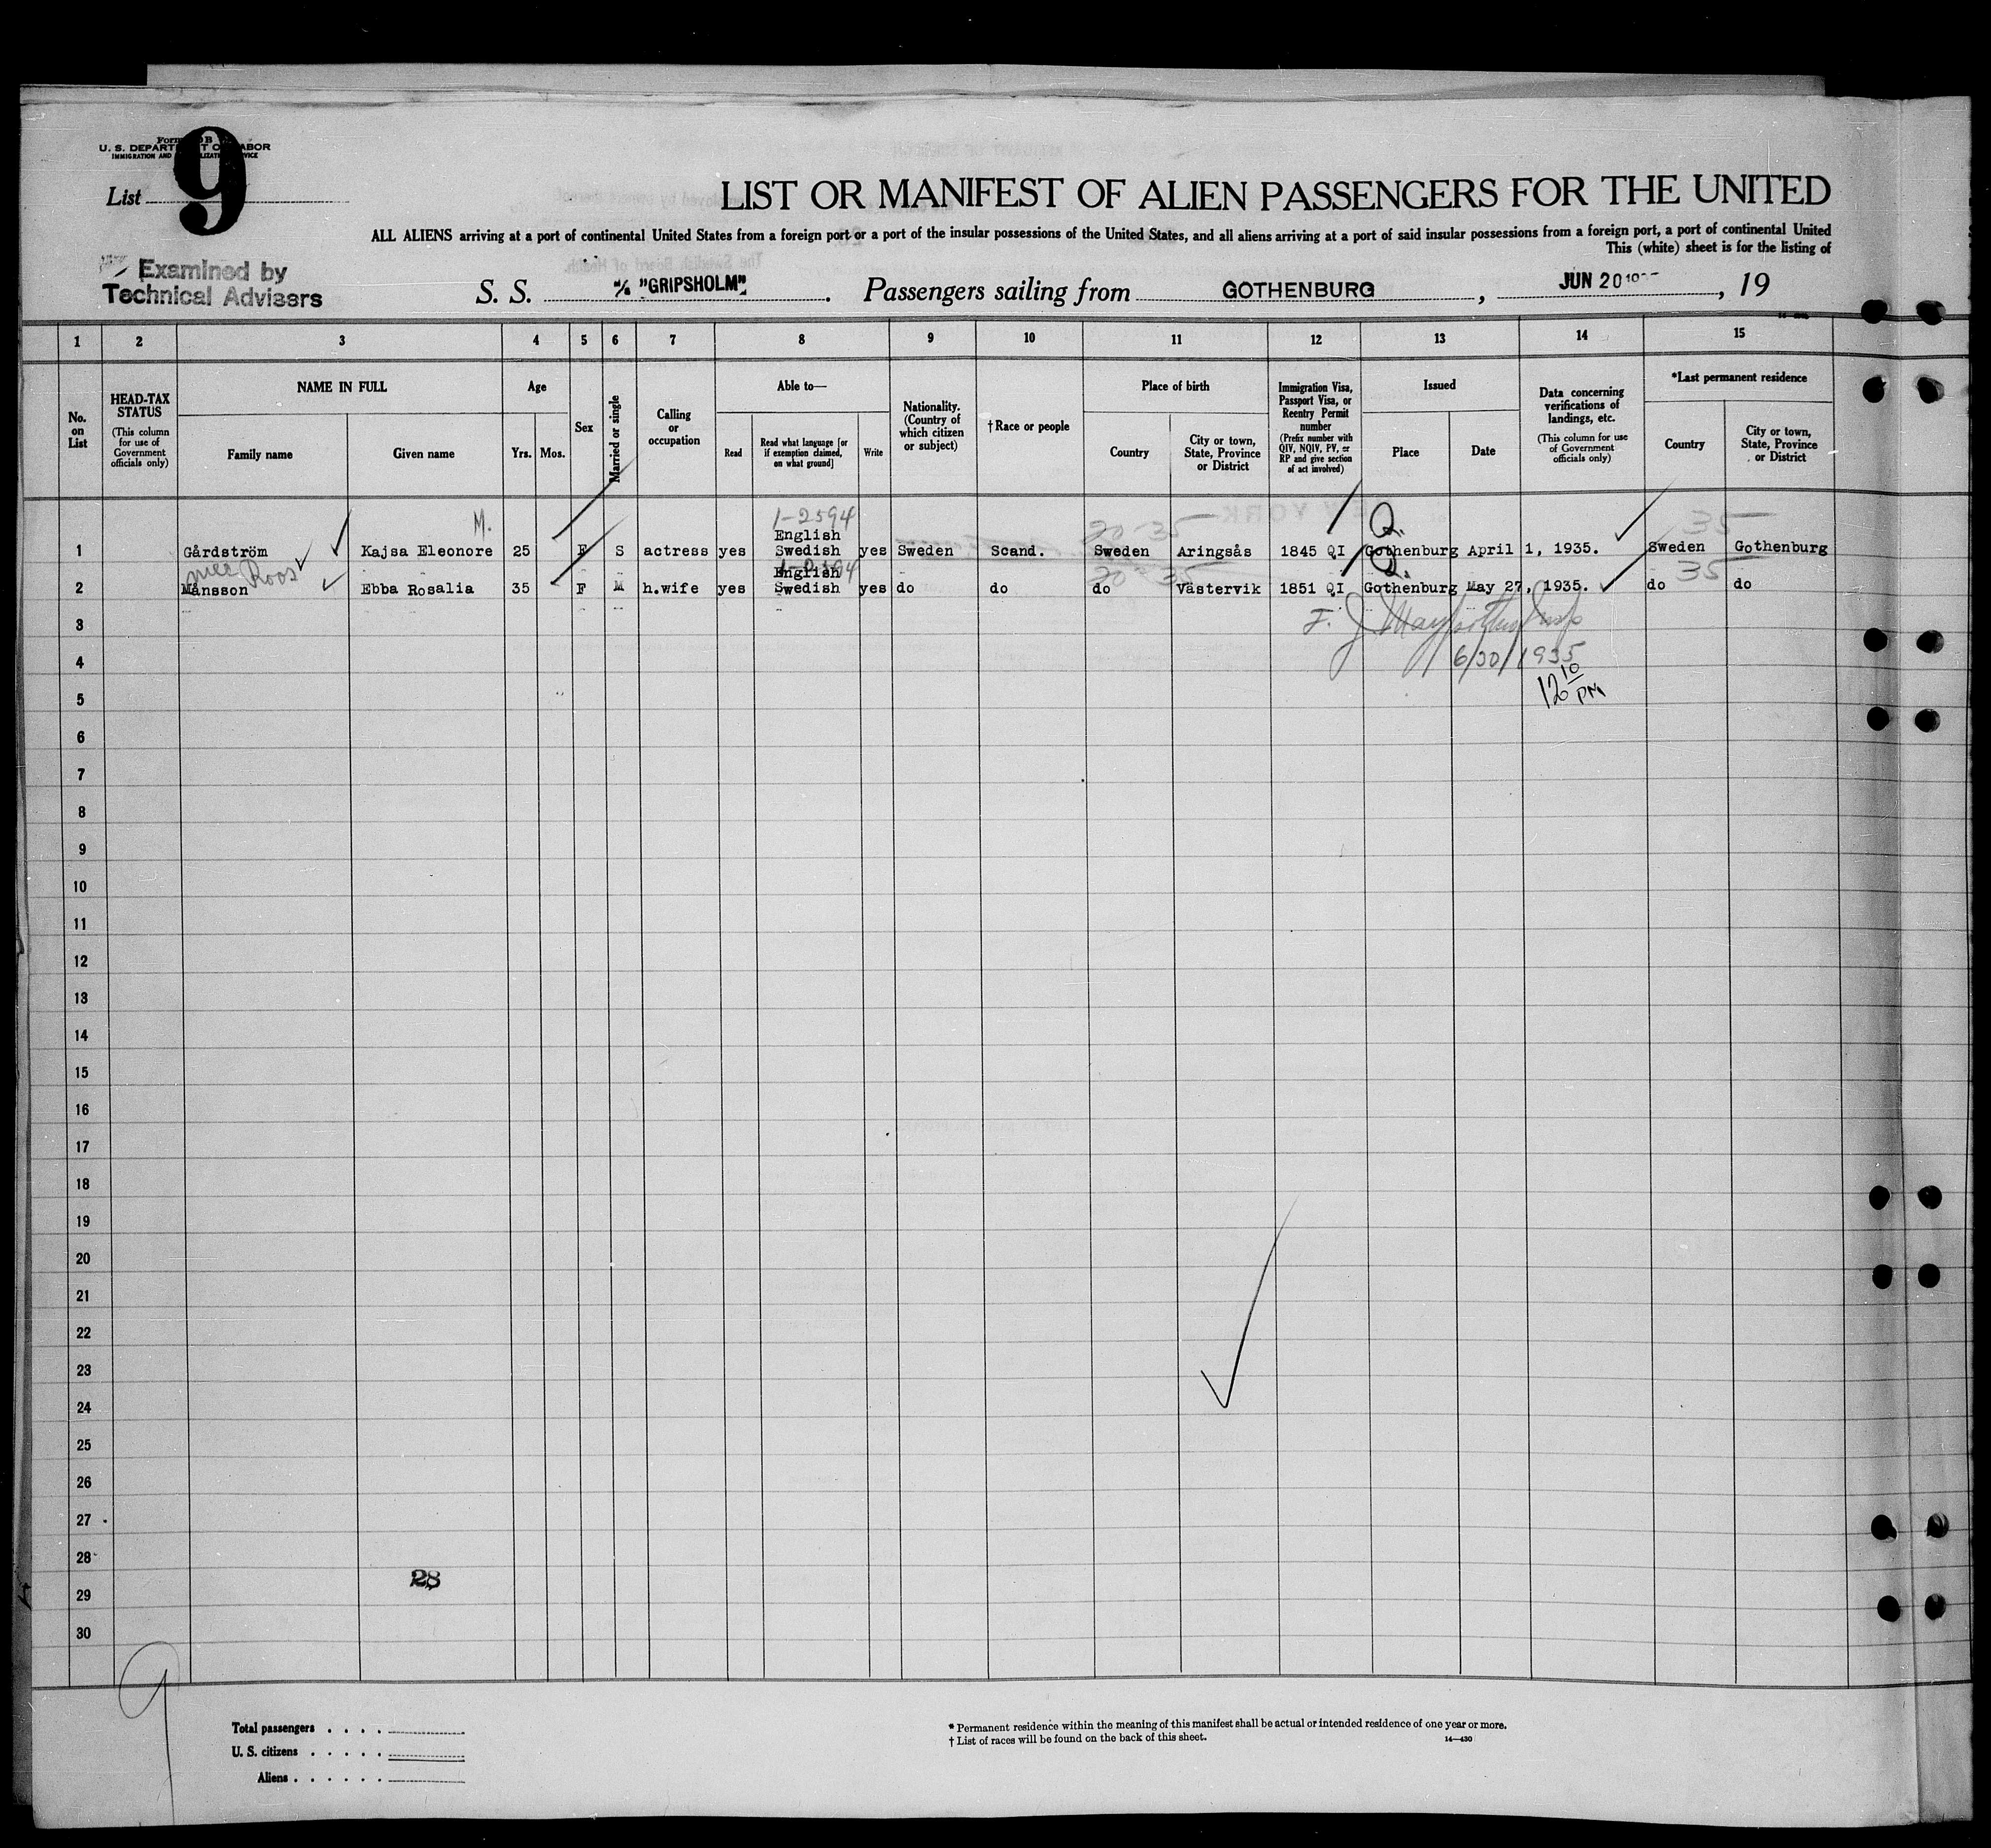 U. S. DEPARTMENT OF LABOR
List 9
LIST OR MANIFEST OF ALIEN PASSENGERS FOR THE UNITED
ALL ALIENS arriving at a port of continental United States from a foreign port or a port of the insular possessions of the United States, and all aliens arriving at a port of said insular possessions from a foreign port, a port of continental United
This (white) sheet is for the listing of
Examined by
Technical Advisers
S. S. M/S "GRIPSHOLM". Passengers sailing from GOTHENBURG, JUN 20, 19
1 2 3 4 5 6 7 8 9 10 11 12 13 14 15
No. on List
HEAD-TAX STATUS
(This column for use of Government officials only)
NAME IN FULL
Family name
Given name
Age
Yrs. Mos.
Sex
Married or single
Calling or occupation
Able to—
Read
Read what language [or if exemption claimed, on what ground]
Write
Nationality. (Country of which citizen or subject)
† Race or people
Place of birth
Country
City or town, State, Province or District
Immigration Visa, Passport Visa, or Reentry Permit number
(Prefix number with QIV, NQIV, PV, or RP and give section of act involved)
Issued
Place
Date
Data concerning verifications of landings, etc.
(This column for use of Government officials only)
*Last permanent residence
Country
City or town, State, Province or District
M. 1-2594 20-35 Q. 35
1 Gårdström Kajsa Eleonore 25 F S actress yes English Swedish yes Sweden Scand. Sweden Aringsås 1845 QI Gothenburg April 1, 1935. Sweden Gothenburg
nee Roos 1-2594 20-35 Q. 35
2 Månsson Ebba Rosalia 35 F M h.wife yes English Swedish yes do do do Västervik 1851 QI Gothenburg May 27, 1935. do do
3 F. J.
4 6/30/1935
5 12 10 PM
6
7
8
9
10
11
12
13
14
15
16
17
18
19
20
21
22
23
24
25
26
27
28
29
30
28
9
Total passengers . . . .
U. S. citizens . . . . .
Aliens . . . . . .
* Permanent residence within the meaning of this manifest shall be actual or intended residence of one year or more.
† List of races will be found on the back of this sheet. 14—430